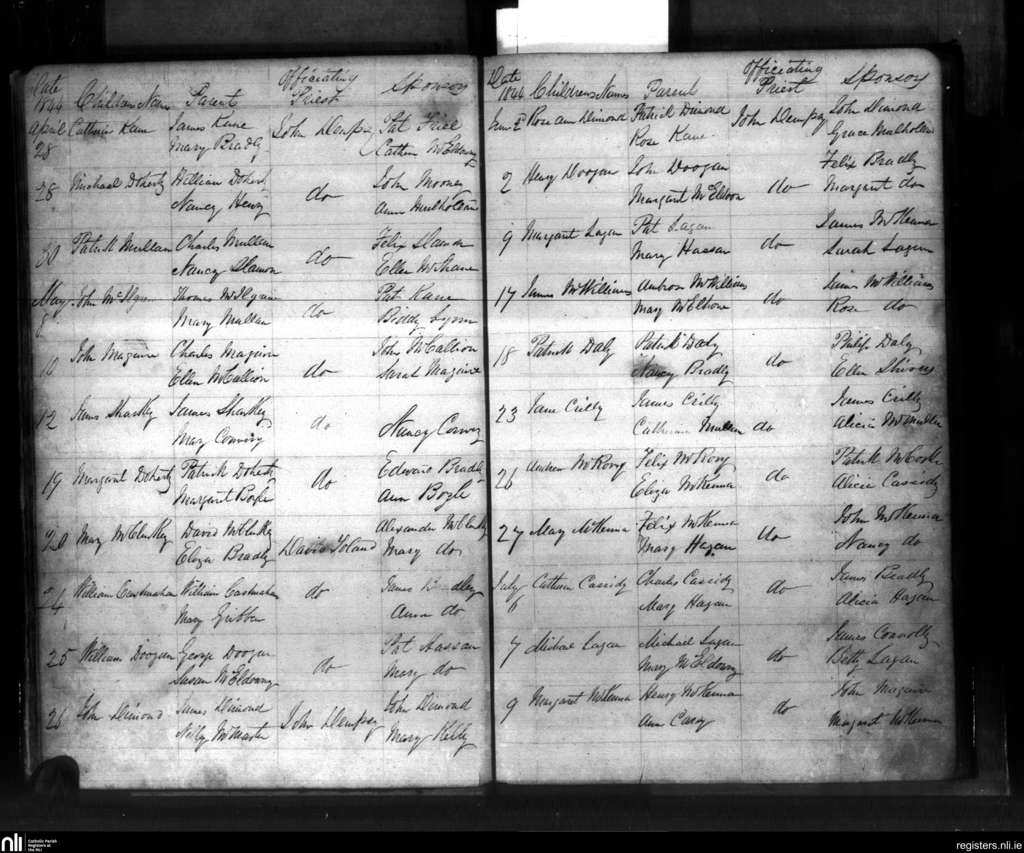 Date 1844 Childrens Name Parent Officiating Priest Sponsors
April 28 Catherine Kane James Kane John Dempsy Pat Friel
Mary Bradly Cathrn McEldowny
28 Michael Doherty William Doherty do John Mooney
Nancy Henry Ann Mulholland
30 Patrick Mullan Charles Mullan do Felix
Nancy Ellen McShane
May 8 John McIlguin Thomas McIlguin do Pat Kane
Mary Mullan Biddy Lynn
10 John Maguire Charles Maguire do John McCallion
Ellen McCallion Sarah Maguire
12 James Sharkey James Sharkey do
Mary Conway Nancy Conway
19 Margaret Doherty Patrick Doherty do Edward Bradly
Margaret Boyle Ann Boyle
20 Mary McCluskey David McCluskey David Toland Alexander McClusky
Eliza Bradly Mary do
24 William William do James Bradley
Mary Ann do
25 William Doogan George Doogan do Pat Hassan
Susan McEldowny Mary do
26 John Dimond James Dimond John Dempsey John Dimond
Nelly McMaster Mary Kelly
Date 1844 Childrens Names Parent Officiating Priest Sponsors
June 2 Rose ann Dimond Patrick Dimond John Dempsey John Dimond
Rose Kane Grace Mulhollan
2 Henry Doogan John Doogan do Felix Bradly
Margaret McEldoon Margaret do
9 Margaret Lagan Pat Lagan do James McKenna
Mary Hassan Sarah Lagan
17 James McWilliams Ambrose McWilliams do McWilliams
Mary McElhone Rose do
18 Patrick Daly Patrick Daly do Philip Daly
Nancy Bradly Ellen Shivers
23 Jane Crilly James Crilly do James Crilly
Catherine Mullan Alicia
26 Andrew McRory Felix McRory do Patrick McCorle
Eliza McKenna Alicia Cassidy
27 Mary McKenna Felix McKenna do John McKenna
Mary Hagan Nancy do
July 6 Cathern Cassidy Charles Cassidy do James Bradly
Mary Hagan Alicia Hagan
7 Michael Lagan Michael Lagan do James Connolly
Mary McEldowny Betty Lagan
9 Margaret McKenna Henry McKenna do John Maguire
Ann Cary Margaret McKenna
nli Catholic Parish Registers at the NLI
registers.nli.ie